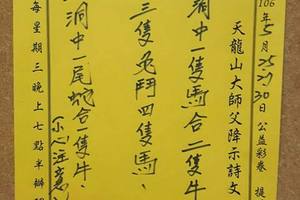 106年5月25 27 30日公益彩卷 提
天龍山大師父降示詩文
洞中一隻馬合二隻牛
三隻兔鬥四隻馬、
洞中一尾蛇合一隻牛、
(小心注意)
每星期三晚上七點半辦